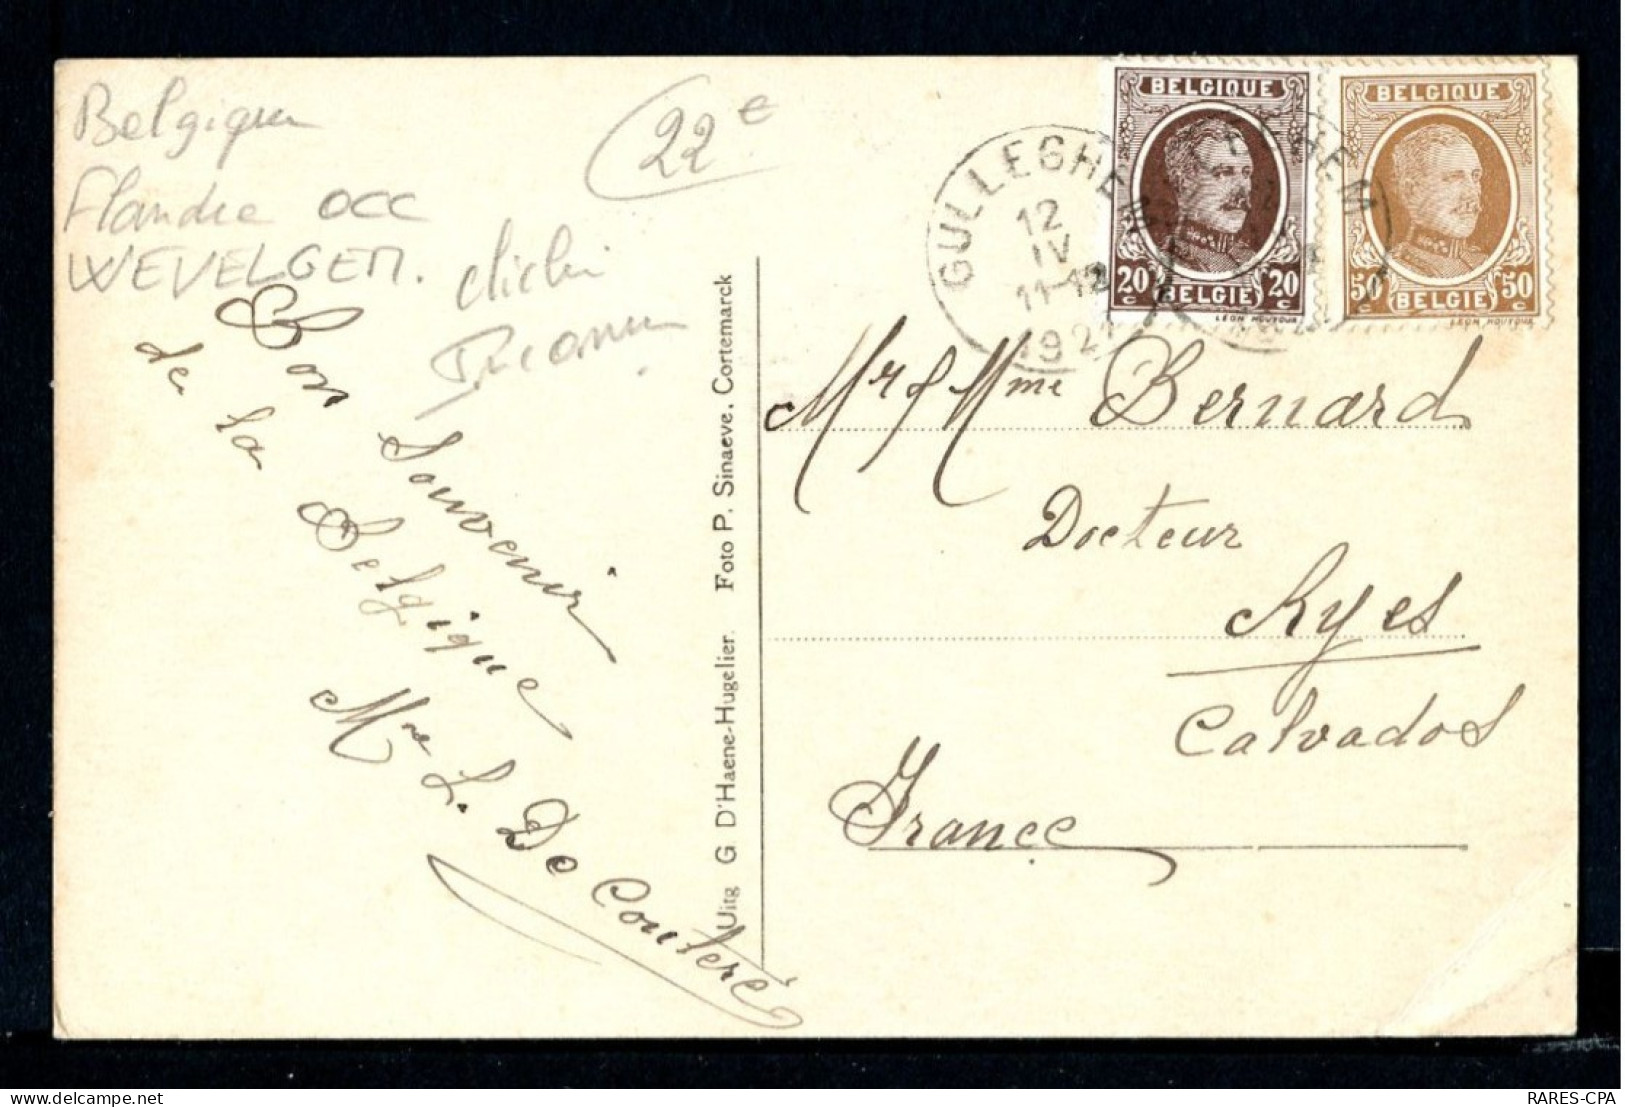 Belgique
Flandre occ
WEVELGEM.
cliché
22 e
Bon Souvenir
de la Belgique
Mme L. De Couteré
Uitg G. D'Haene-Hugelier. Foto P. Sinaeve, Cortemarck
GULLEGHEM
12
IV
11-12
192
BELGIQUE
20 c 20 c
BELGIE
LÉON HOUYOUX
BELGIQUE
50 c 50 c
BELGIE
LÉON HOUYOUX
Mr & Mme Bernard
Docteur
Ryes
Calvados
France
RARES-CPA